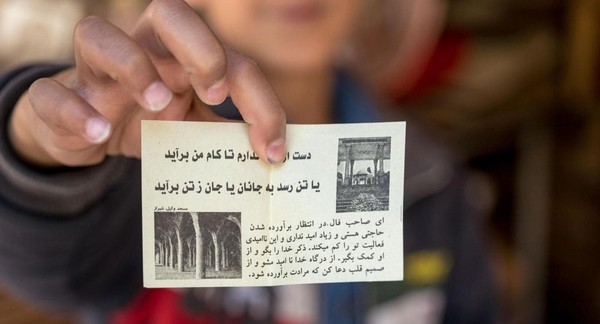 دست از ندارم تا کام من برآید
یا تن رسد به جانان یا جان ز تن برآید
مسجد وکیل، شیراز
ای صاحب فال، در انتظار برآورده شدن
حاجتی هستی و زیاد امید نداری و این ناامیدی
فعالیت تو را کم میکند. ذکر خدا را بگو و از
او کمک بگیر. از درگاه خدا نا امید مشو و از
صمیم قلب دعا کن که مرادت برآورده شود.